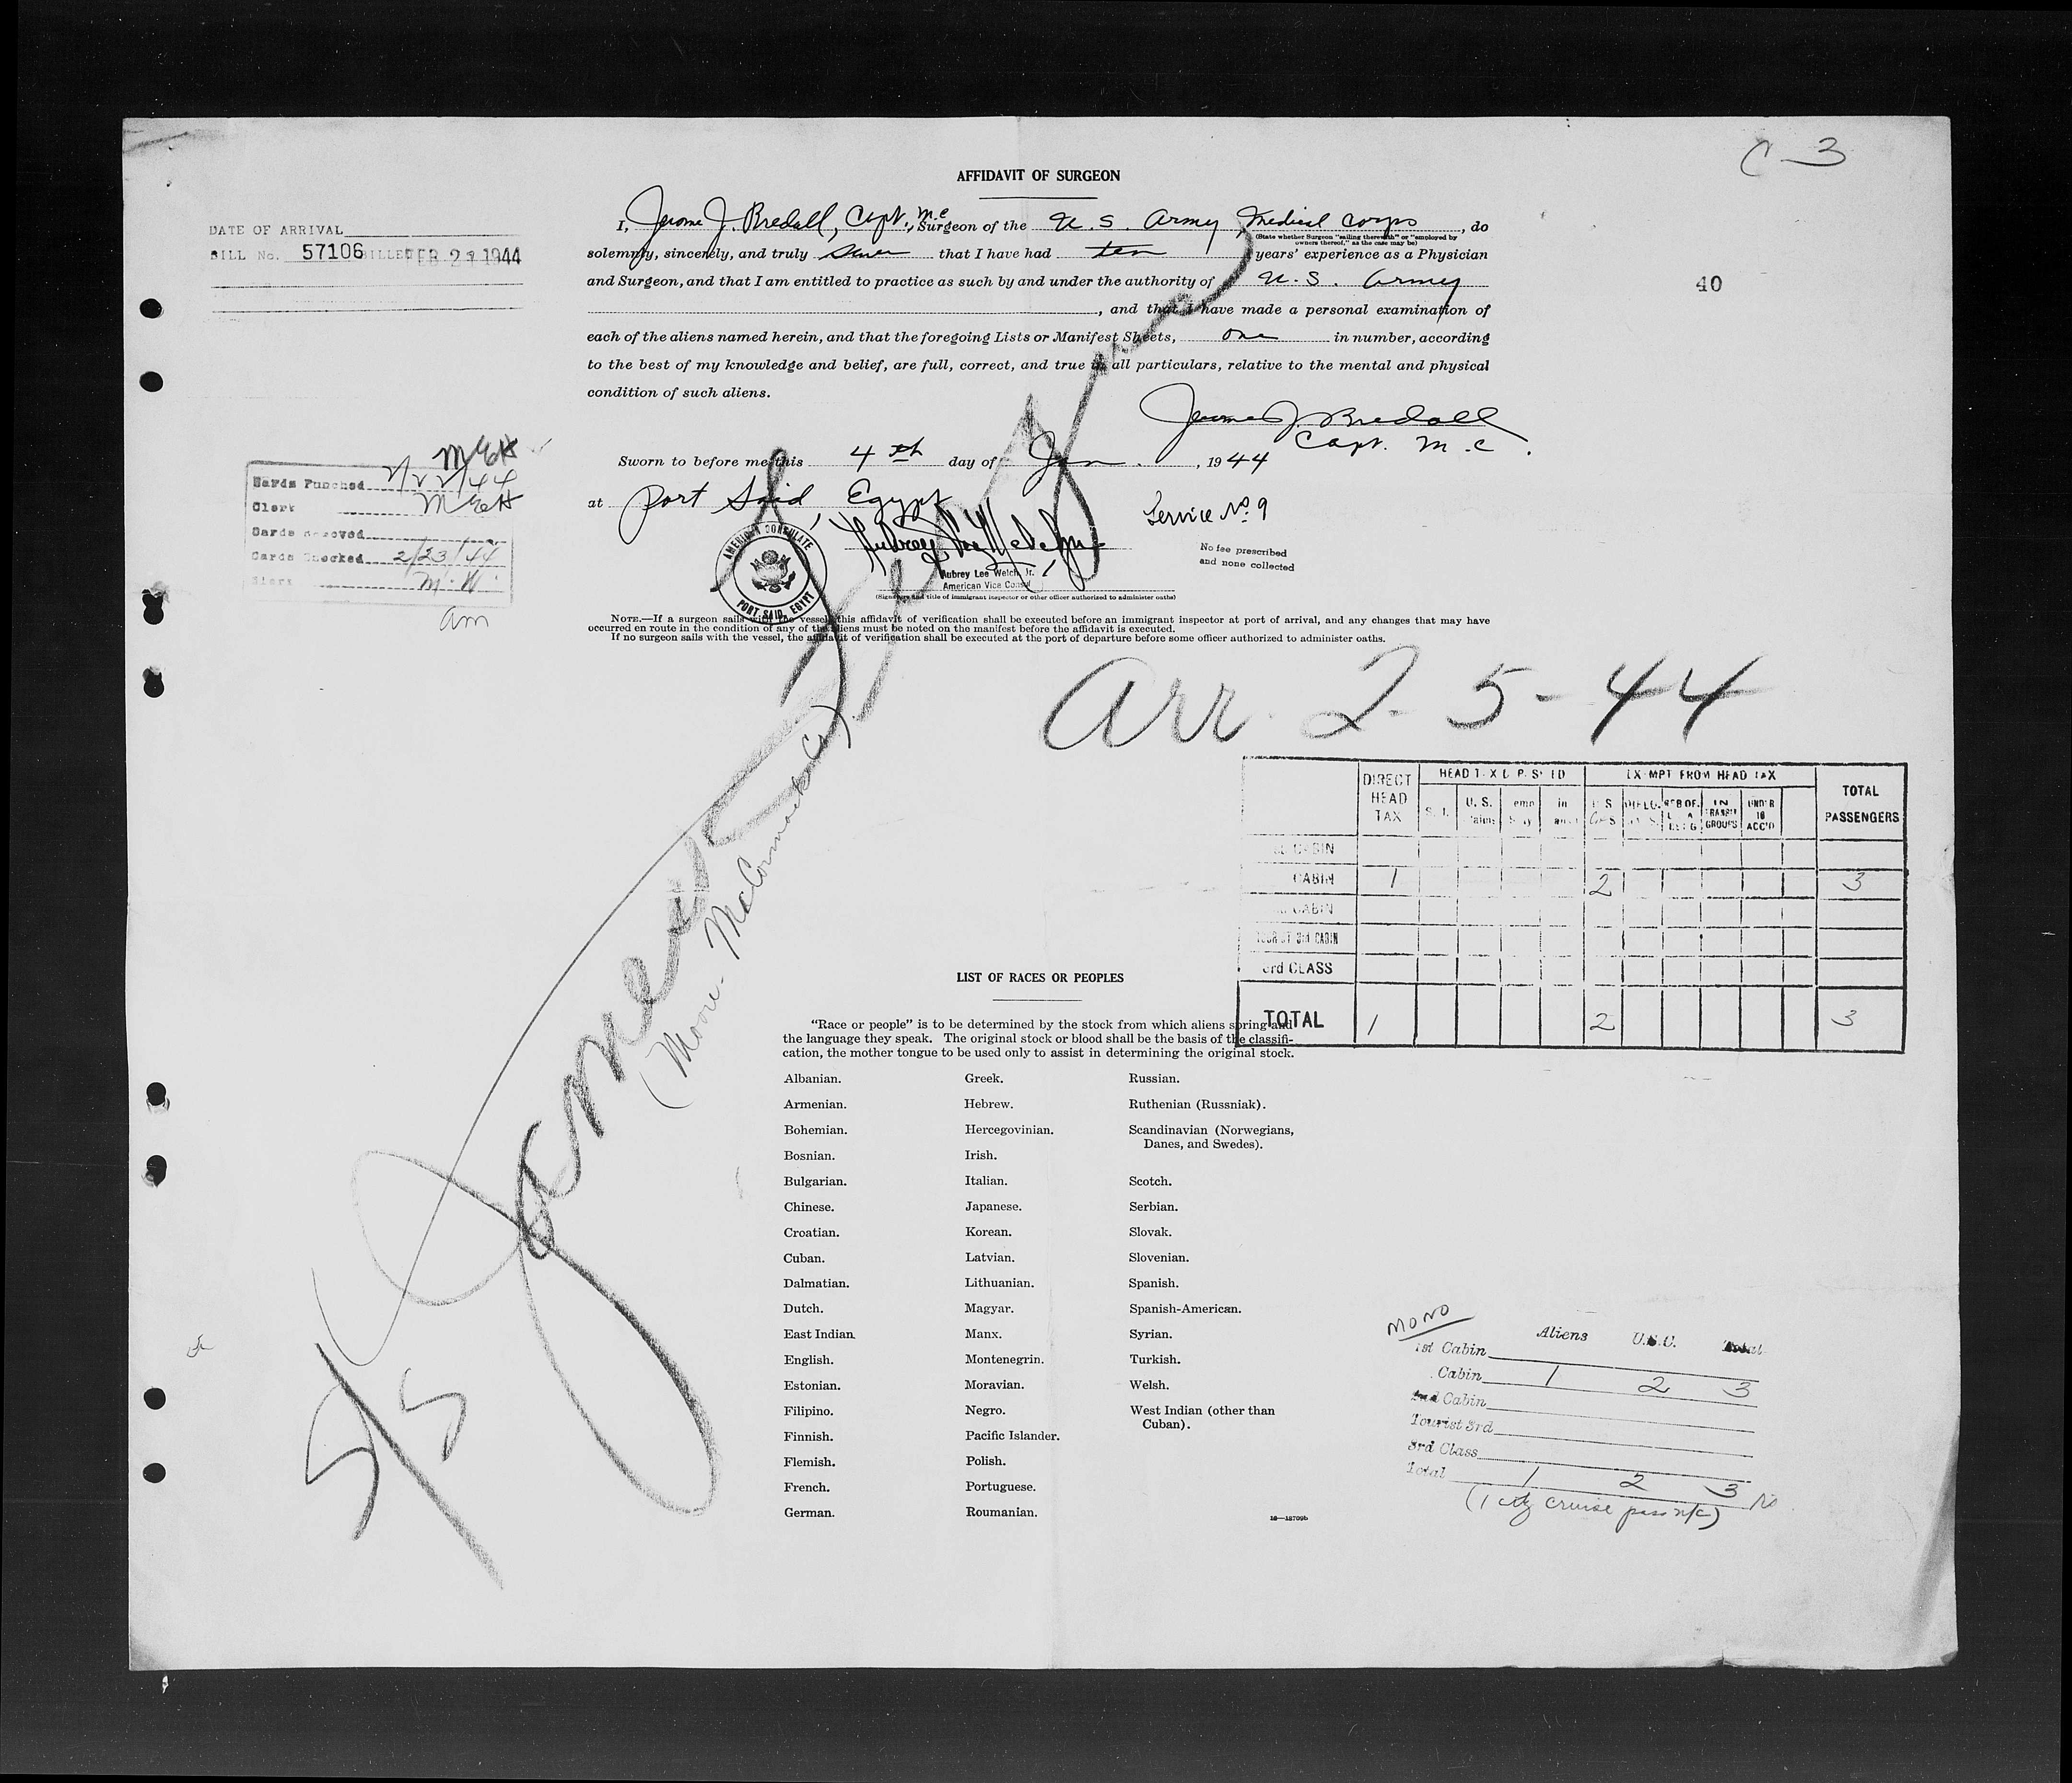 C-3
AFFIDAVIT OF SURGEON
I, Jerome J. Bredall, Capt., M.C., Surgeon of the U. S. Army Medical Corps, do
(State whether Surgeon "sailing therewith" or "employed by owners thereof," as the case may be)
solemnly, sincerely, and truly swear that I have had ten years' experience as a Physician
and Surgeon, and that I am entitled to practice as such by and under the authority of U. S. Army
, and that I have made a personal examination of
each of the aliens named herein, and that the foregoing Lists or Manifest Sheets, one in number, according
to the best of my knowledge and belief, are full, correct, and true in all particulars, relative to the mental and physical
condition of such aliens.
Jerome J. Bredall
Capt. M.C.
Sworn to before me this 4th day of Jan., 1944
at Port Said, Egypt
Service No. 9
No fee prescribed
and none collected
Aubrey Lee Welch, Jr.
American Vice Consul
(Signature and title of immigrant inspector or other officer authorized to administer oaths)
AMERICAN CONSULATE
PORT SAID, EGYPT
NOTE.—If a surgeon sails with the vessel, this affidavit of verification shall be executed before an immigrant inspector at port of arrival, and any changes that may have
occurred en route in the condition of any of the aliens must be noted on the manifest before the affidavit is executed.
If no surgeon sails with the vessel, the affidavit of verification shall be executed at the port of departure before some officer authorized to administer oaths.
DATE OF ARRIVAL
BILL No. 57106 BILLED FEB 21 1944
40
Cards Punched 2/22/44
Clerk
Cards Removed
Cards Checked 2/23/44
Clerk M.W.
am
Arr. 2-5-44
S/S James
(Moore-McCormack Co)
DIRECT HEAD TAX
EXEMPT FROM HEAD TAX
TOTAL PASSENGERS
U.S.
IN TRANSIT GROUPS
UNDER 16 ACC'D
CABIN 1 2 3
CABIN
TOURIST 3rd CABIN
3rd CLASS
TOTAL 1 2 3
LIST OF RACES OR PEOPLES
"Race or people" is to be determined by the stock from which aliens spring and
the language they speak. The original stock or blood shall be the basis of the classifi-
cation, the mother tongue to be used only to assist in determining the original stock.
Albanian.
Armenian.
Bohemian.
Bosnian.
Bulgarian.
Chinese.
Croatian.
Cuban.
Dalmatian.
Dutch.
East Indian.
English.
Estonian.
Filipino.
Finnish.
Flemish.
French.
German.
Greek.
Hebrew.
Hercegovinian.
Irish.
Italian.
Japanese.
Korean.
Latvian.
Lithuanian.
Magyar.
Manx.
Montenegrin.
Moravian.
Negro.
Pacific Islander.
Polish.
Portuguese.
Roumanian.
Russian.
Ruthenian (Russniak).
Scandinavian (Norwegians,
Danes, and Swedes).
Scotch.
Serbian.
Slovak.
Slovenian.
Spanish.
Spanish-American.
Syrian.
Turkish.
Welsh.
West Indian (other than
Cuban).
MONO
Aliens U.S.C. Total
1st Cabin
Cabin 1 2 3
2nd Cabin
Tourist 3rd
3rd Class
Total 1 2 3